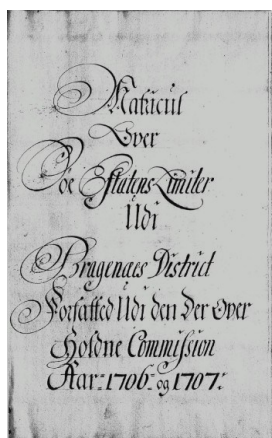 Matricul
Over
Söe Etatens Limiter
Udi
Bragenæs District
Forfatted Udi den Der Over
Holdne Commission
Aar: 1706 og 1707